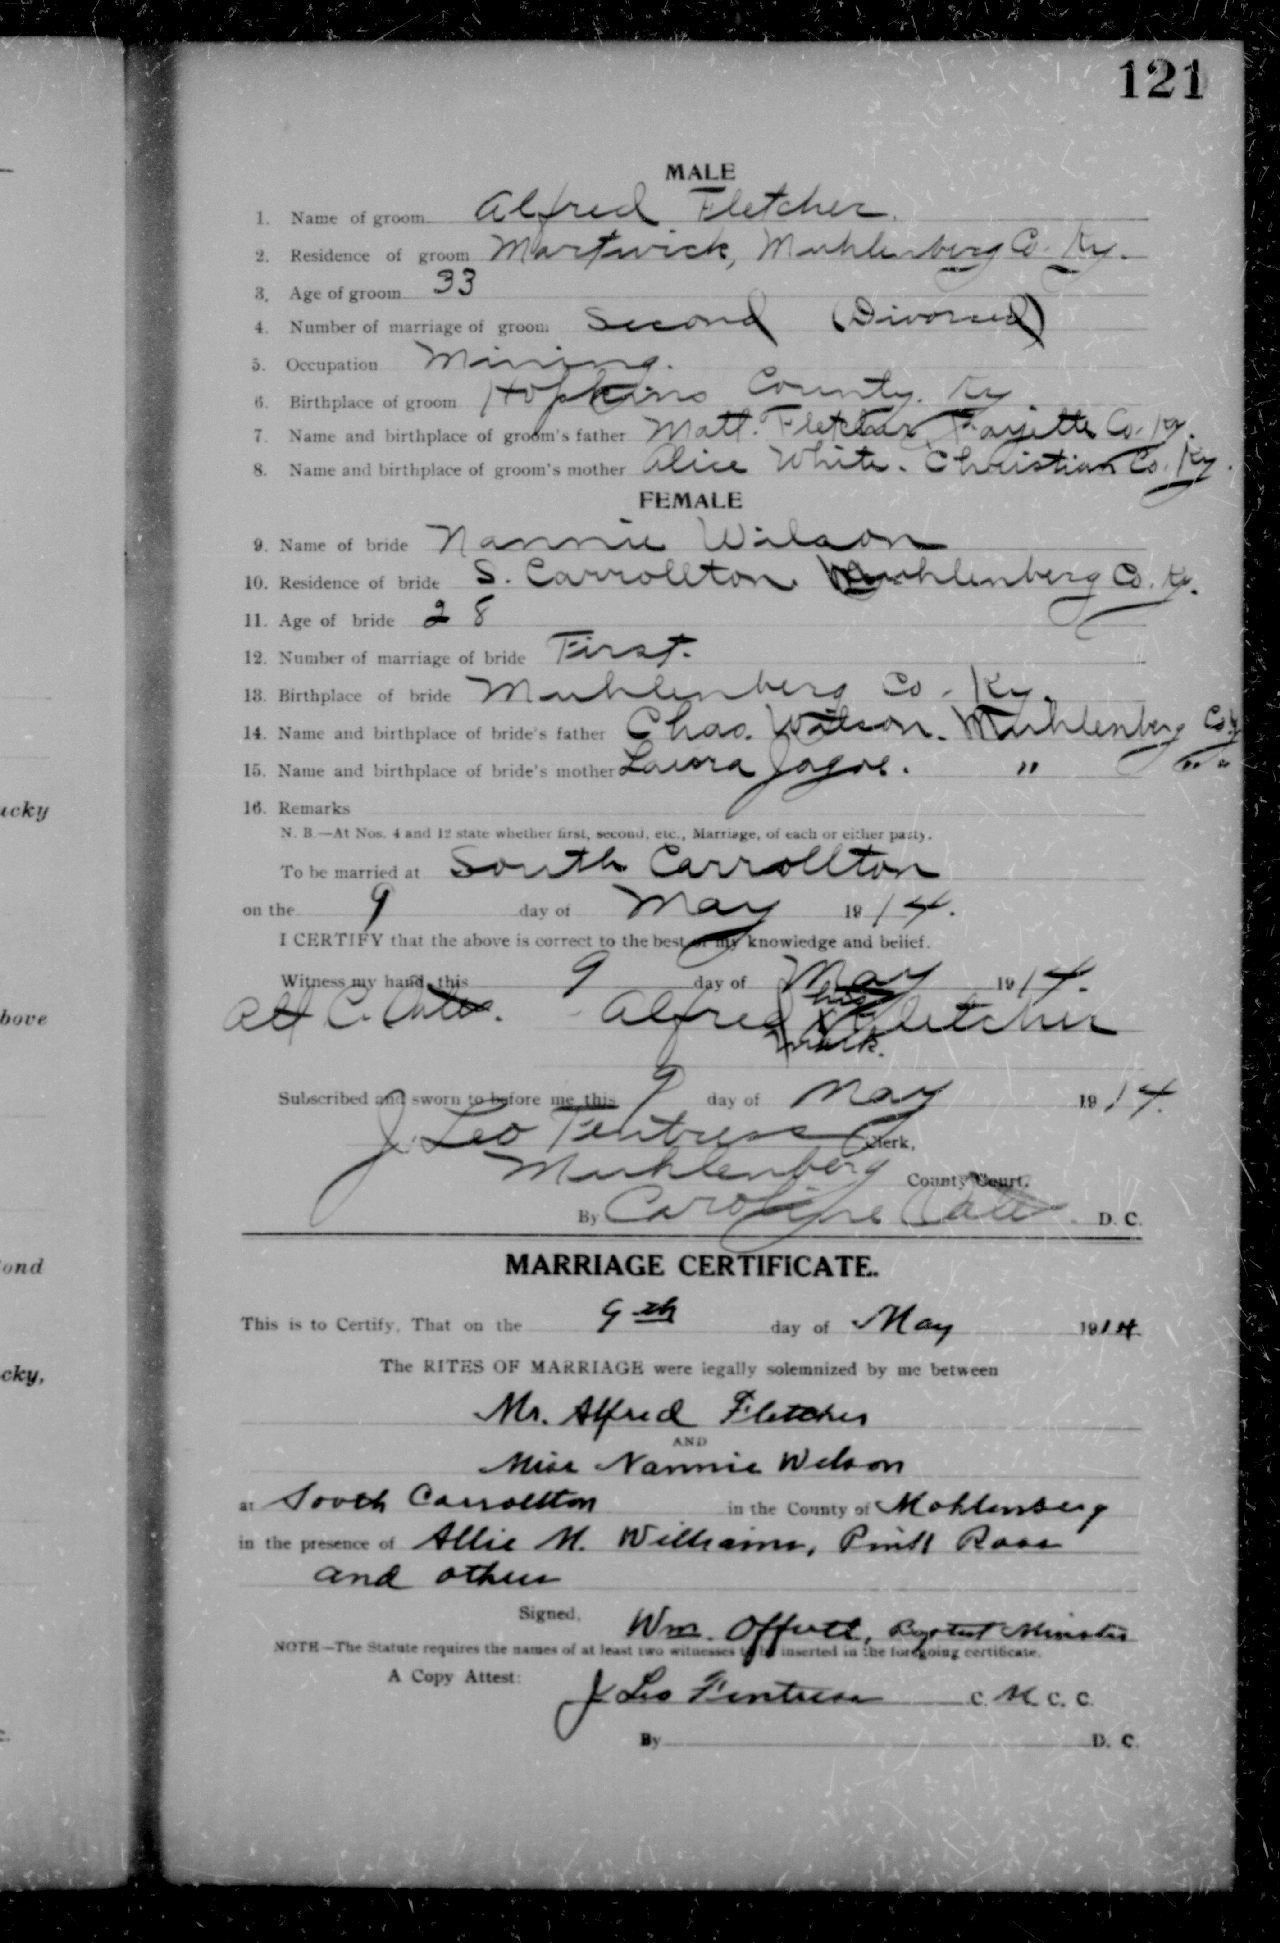 121
MALE
1. Name of groom Alfred Fletcher.
2. Residence of groom Martwick, Muhlenberg Co. Ky.
3. Age of groom 33
4. Number of marriage of groom Second (Divorced)
5. Occupation Mining.
6. Birthplace of groom Hopkins County. Ky
7. Name and birthplace of groom's father Matt. Fletcher, Fayette Co. Ky.
8. Name and birthplace of groom's mother Alice White. Christian Co. Ky.
FEMALE
9. Name of bride Nannie Wilson
10. Residence of bride S. Carrollton Muhlenberg Co. Ky.
11. Age of bride 28
12. Number of marriage of bride First.
13. Birthplace of bride Muhlenberg Co. Ky.
14. Name and birthplace of bride's father Chas. Wilson. Muhlenberg Co. Ky
15. Name and birthplace of bride's mother Laura Jagoe. " " "
ucky
16. Remarks
N. B.—At Nos. 4 and 12 state whether first, second, etc., Marriage, of each or either party.
To be married at South Carrollton
on the 9 day of May 1914.
I CERTIFY that the above is correct to the best of my knowledge and belief.
Witness my hand, this 9 day of May 1914.
his
bove
Att C. Oates. Alfred X Fletcher
mark.
Subscribed and sworn to before me this 9 day of May 1914.
J. Leo Fentress Clerk,
Muhlenberg County Court.
By Caroline Oates D. C.
ond
MARRIAGE CERTIFICATE.
This is to Certify, That on the 9th day of May 1914
cky,
The RITES OF MARRIAGE were legally solemnized by me between
Mr. Alfred Fletcher
AND
Miss Nannie Wilson
at South Carrollton in the County of Mohlenberg
in the presence of Allie M. Williams, Ross
and others
Signed, Wm. Offutt, Baptist Minister
NOTE—The Statute requires the names of at least two witnesses to be inserted in the foregoing certificate.
A Copy Attest: J Leo Fentress C. M. C. C.
By D. C.